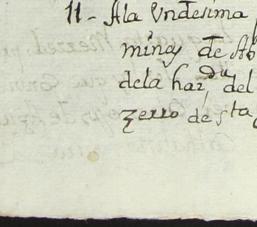 11 - Ala Undesima
minas de Ab
dela har.da del
zerro de Sta